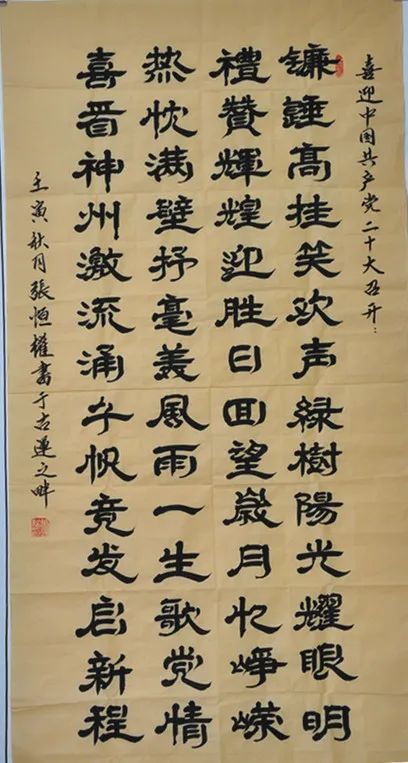 喜迎中国共产党二十大召开：
镰錘高挂笑欢声緑樹陽光耀眼明
禮贊輝煌迎胜日回望歲月忆崢嵘
热忱满壁抒毫美風雨一生歌党情
喜看神州激流涌千帆竞发启新程
壬寅秋月張恒權書于古蓮之畔